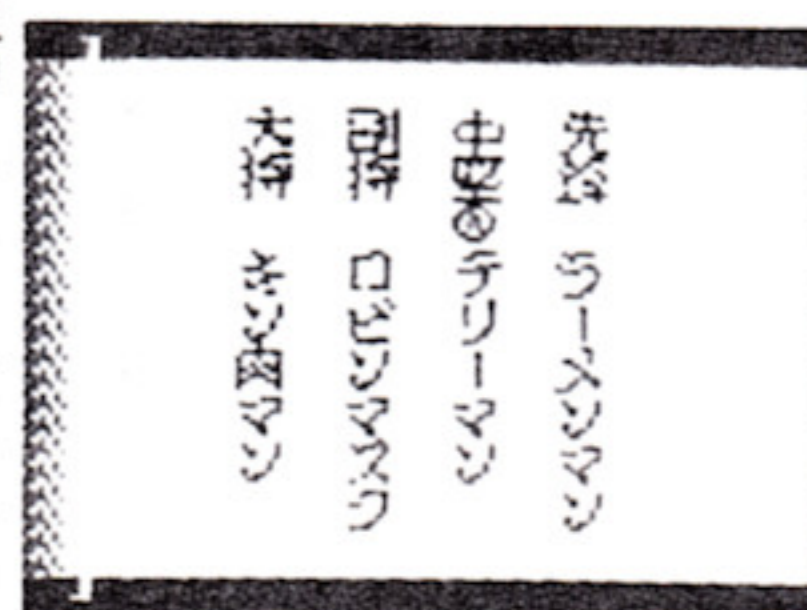 先鋒 ラーメンマン
中堅 テリーマン
副将 ロビンマスク
大将 キン肉マン